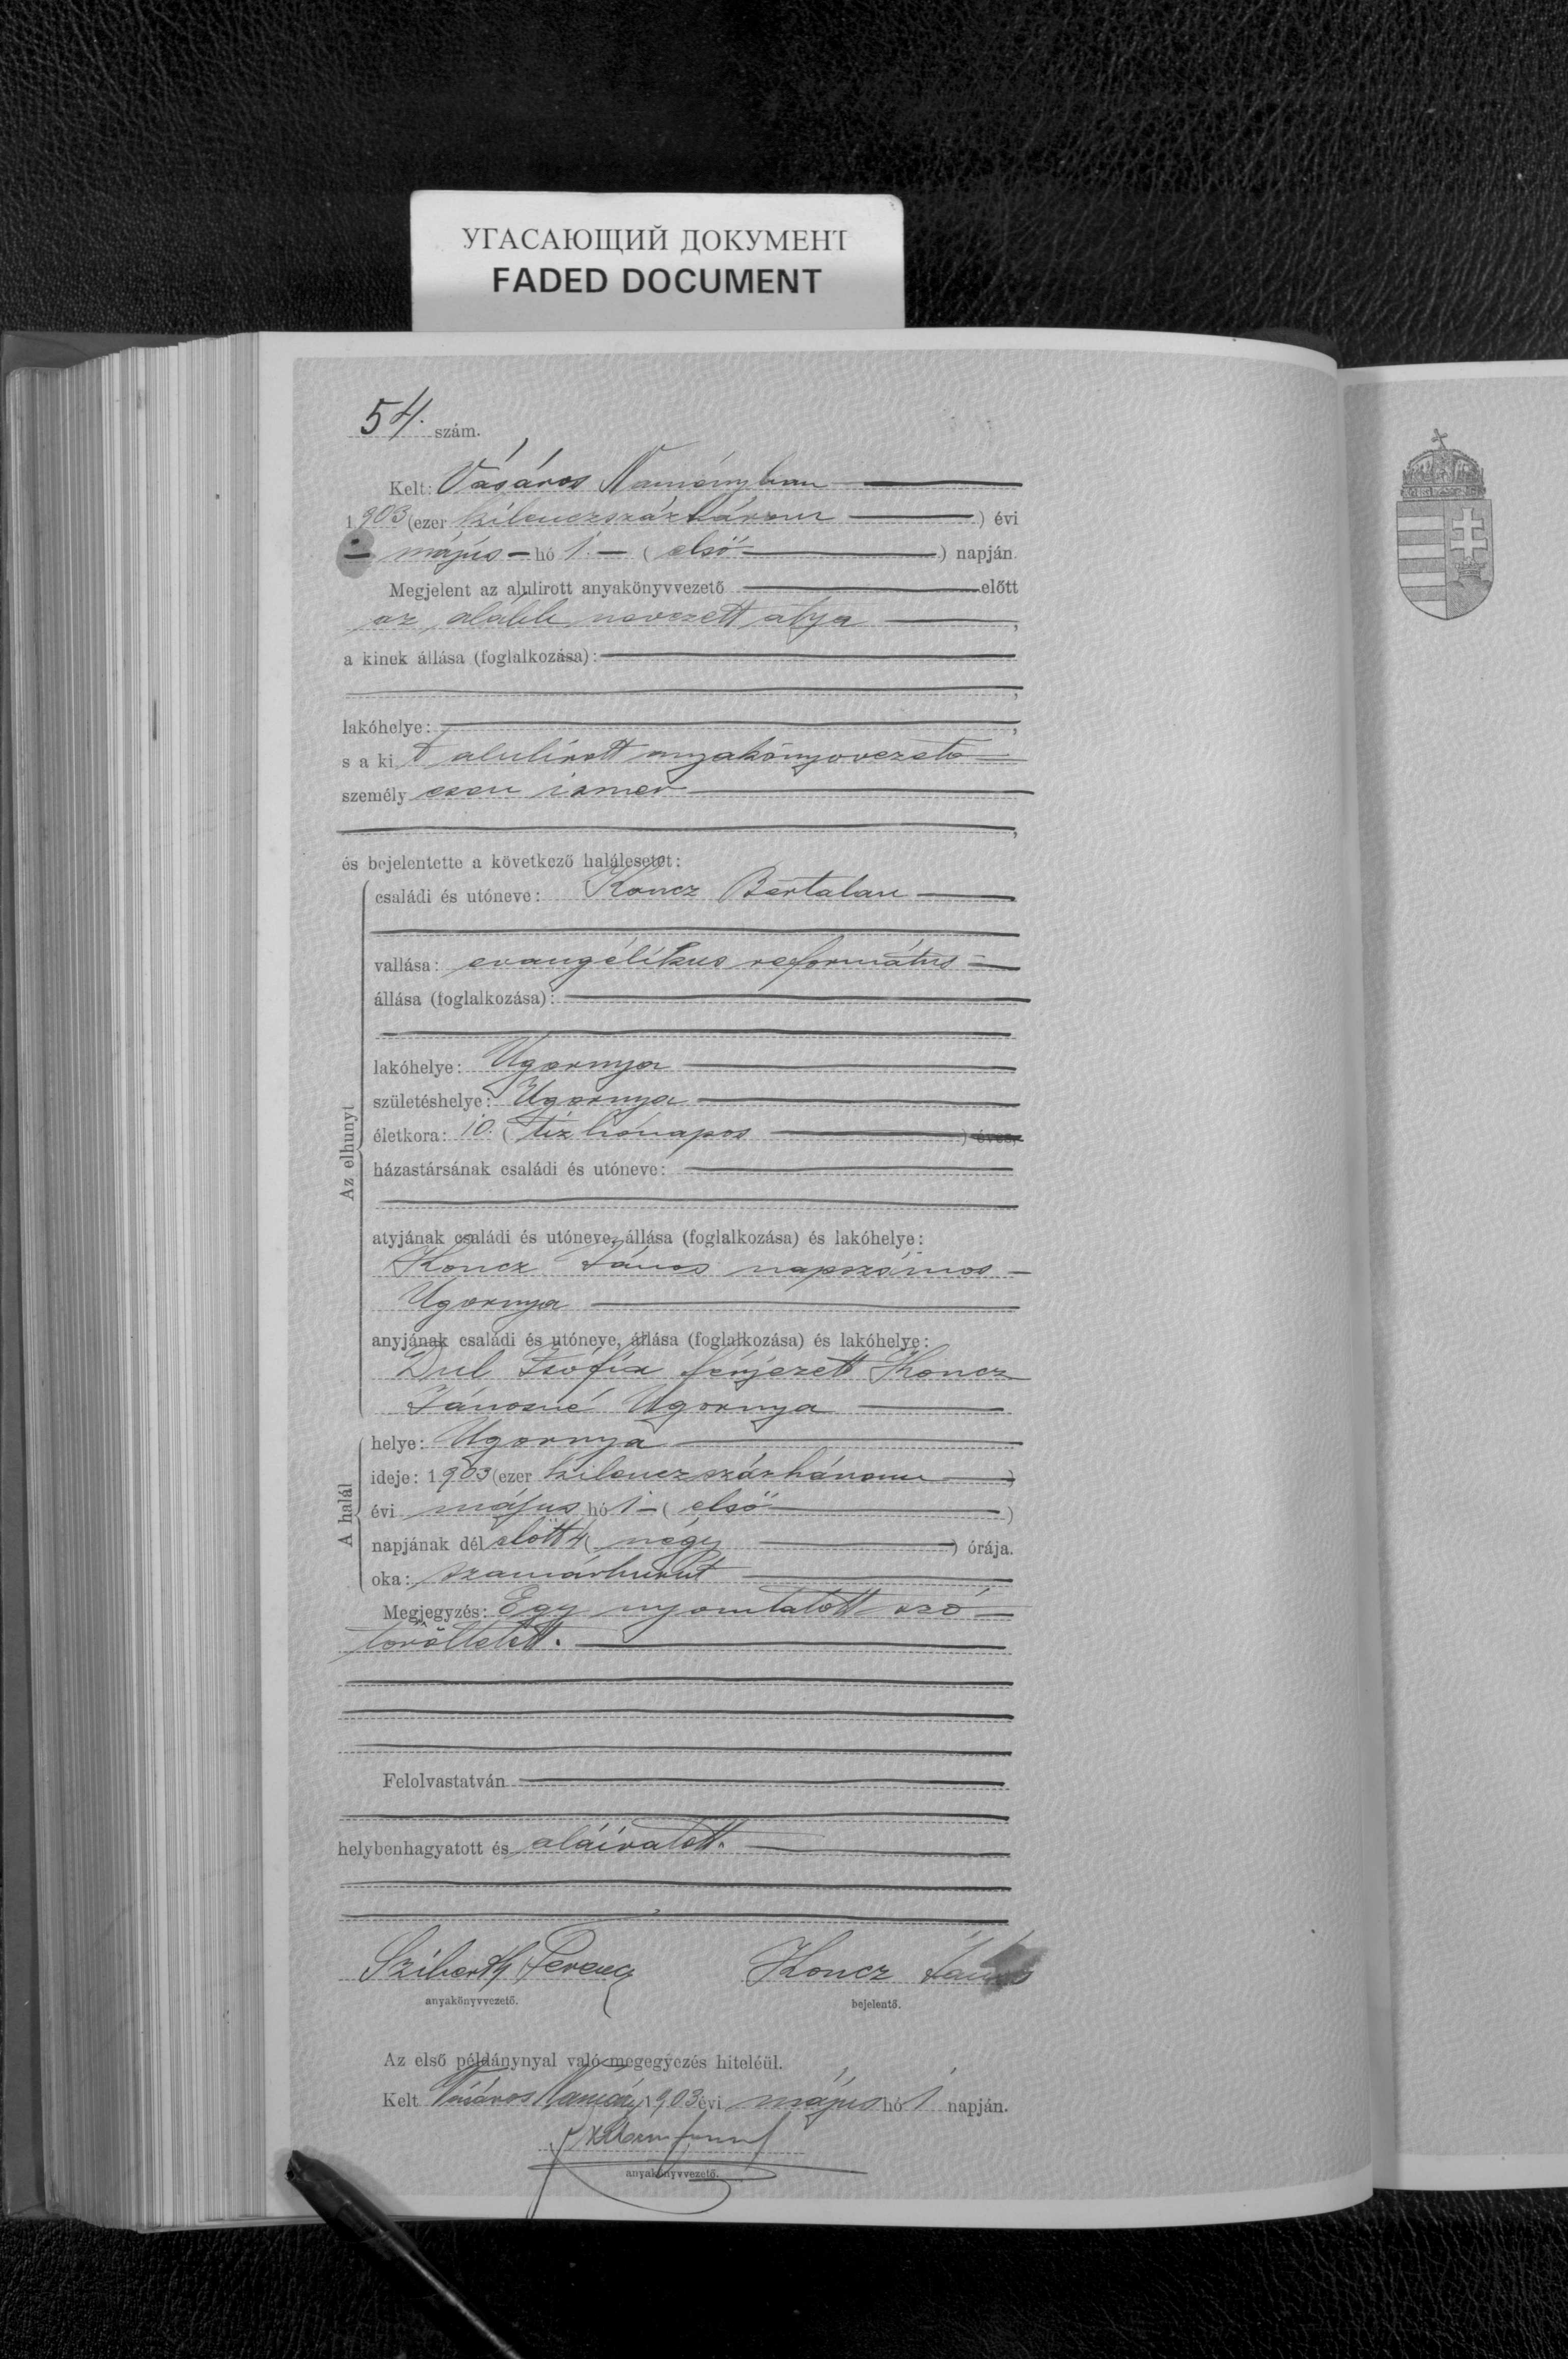 УГАСАЮЩИЙ ДОКУМЕНТ
FADED DOCUMENT
54. szám.
Kelt: Vásáros Naményban
1903 (ezer kilenczszázhárom ) évi
május – hó 1. – ( első ) napján.
Megjelent az alulirott anyakönyvvezető előtt
az alább nevezett atya ,
a kinek állása (foglalkozása):
,
lakóhelye: ,
s a ki t alulírott anyakönyvvezető
személy esen ismer
,
és bejelentette a következő halálesetet:
Az elhunyt
családi és utóneve: Koncz Bertalan
vallása: evangélikus református
állása (foglalkozása):
lakóhelye: Ugornya
születéshelye: Ugornya
életkora: 10. ( tíz hónapos ) éves,
házastársának családi és utóneve:
atyjának családi és utóneve, állása (foglalkozása) és lakóhelye:
Koncz János napszámos –
Ugornya
anyjának családi és utóneve, állása (foglalkozása) és lakóhelye:
Dul Zsófia férjezett Koncz
Jánosné Ugornya
A halál
helye: Ugornya
ideje: 1903 (ezer kilenczszázhárom )
évi május hó 1 – ( első )
napjának dél előtt 4 ( négy ) órája.
oka: szamárhurut
Megjegyzés: Egy nyomtatott szó –
töröltetett.
Felolvastatván
helybenhagyatott és aláíratott.
Ferencz Koncz János
anyakönyvvezető. bejelentő.
Az első példánynyal való megegyezés hiteléül.
Kelt Vásáros Namény 1903 évi május hó 1 napján.
anyakönyvvezető.